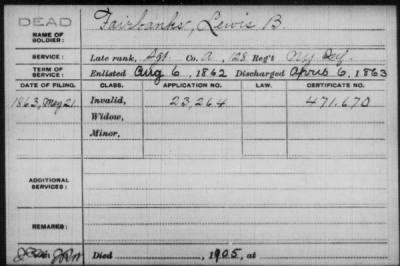 DEAD
NAME OF SOLDIER: Fairbanks, Lewis B.
SERVICE: Late rank, Sgt. Co. A, 128 Reg't N.Y. Inf.
TERM OF SERVICE: Enlisted Aug 6, 1862 Discharged April 6, 1863
DATE OF FILING. CLASS. APPLICATION NO. LAW. CERTIFICATE NO.
1863, May 21. Invalid, 23,264 471.670
Widow,
Minor,
ADDITIONAL SERVICES:
REMARKS:
Died 1905, at